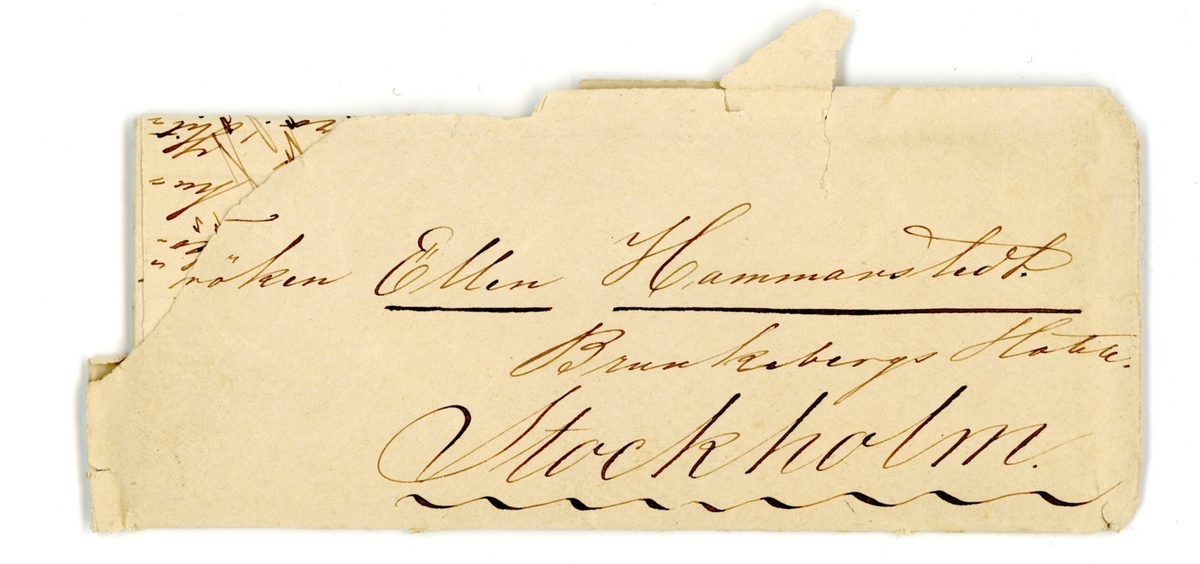 röken Ellen Hammarstedt.
Brunkebergs Hotell.
Stockholm.